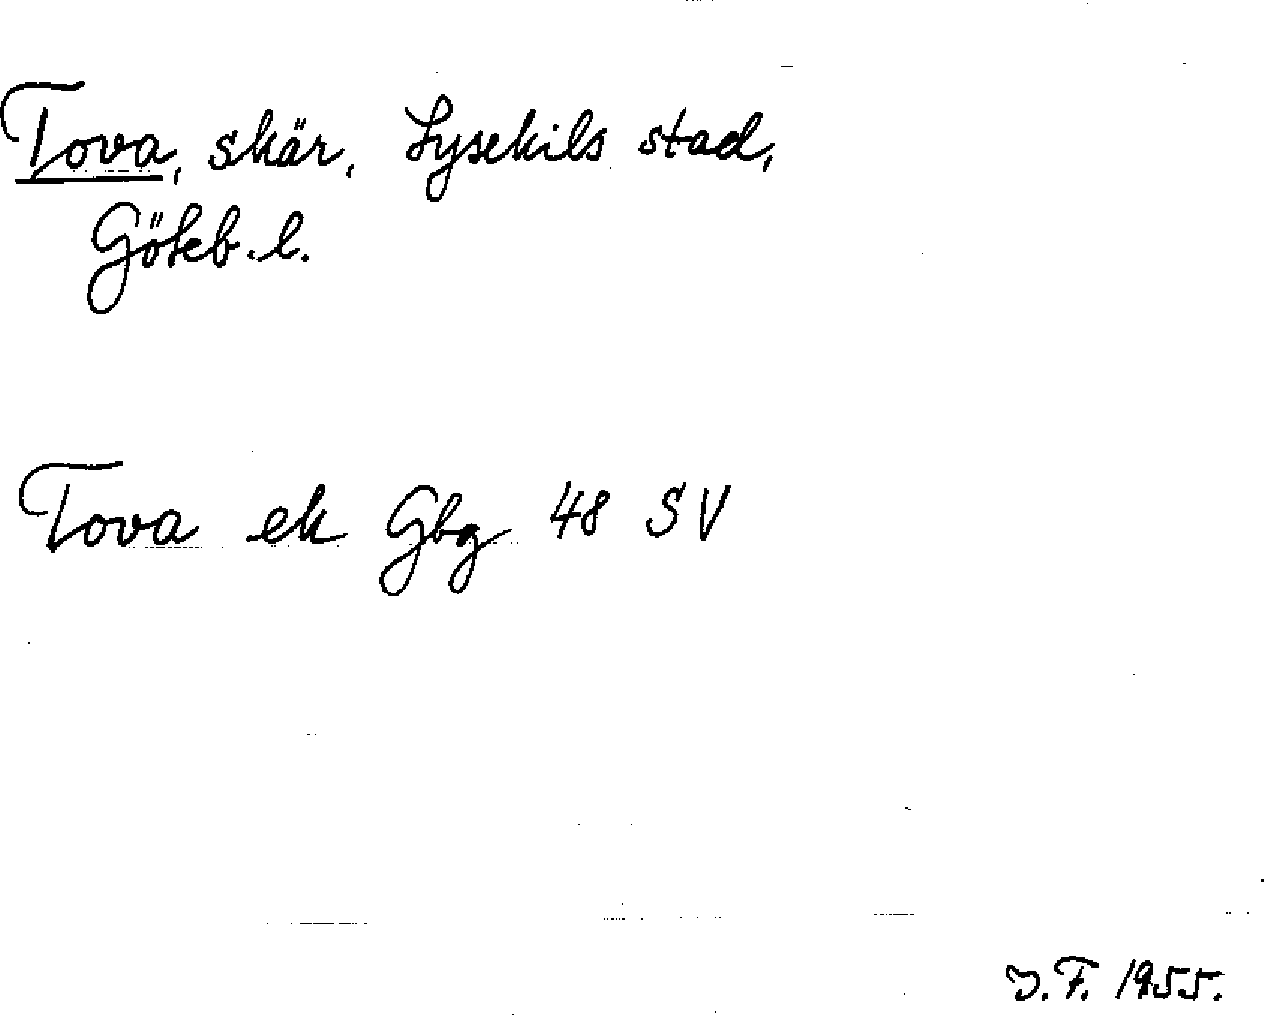 Tova, skär, Lysekils stad,
Göteb. l.
Tova ek Gbg 48 SV
J. F. 1955.